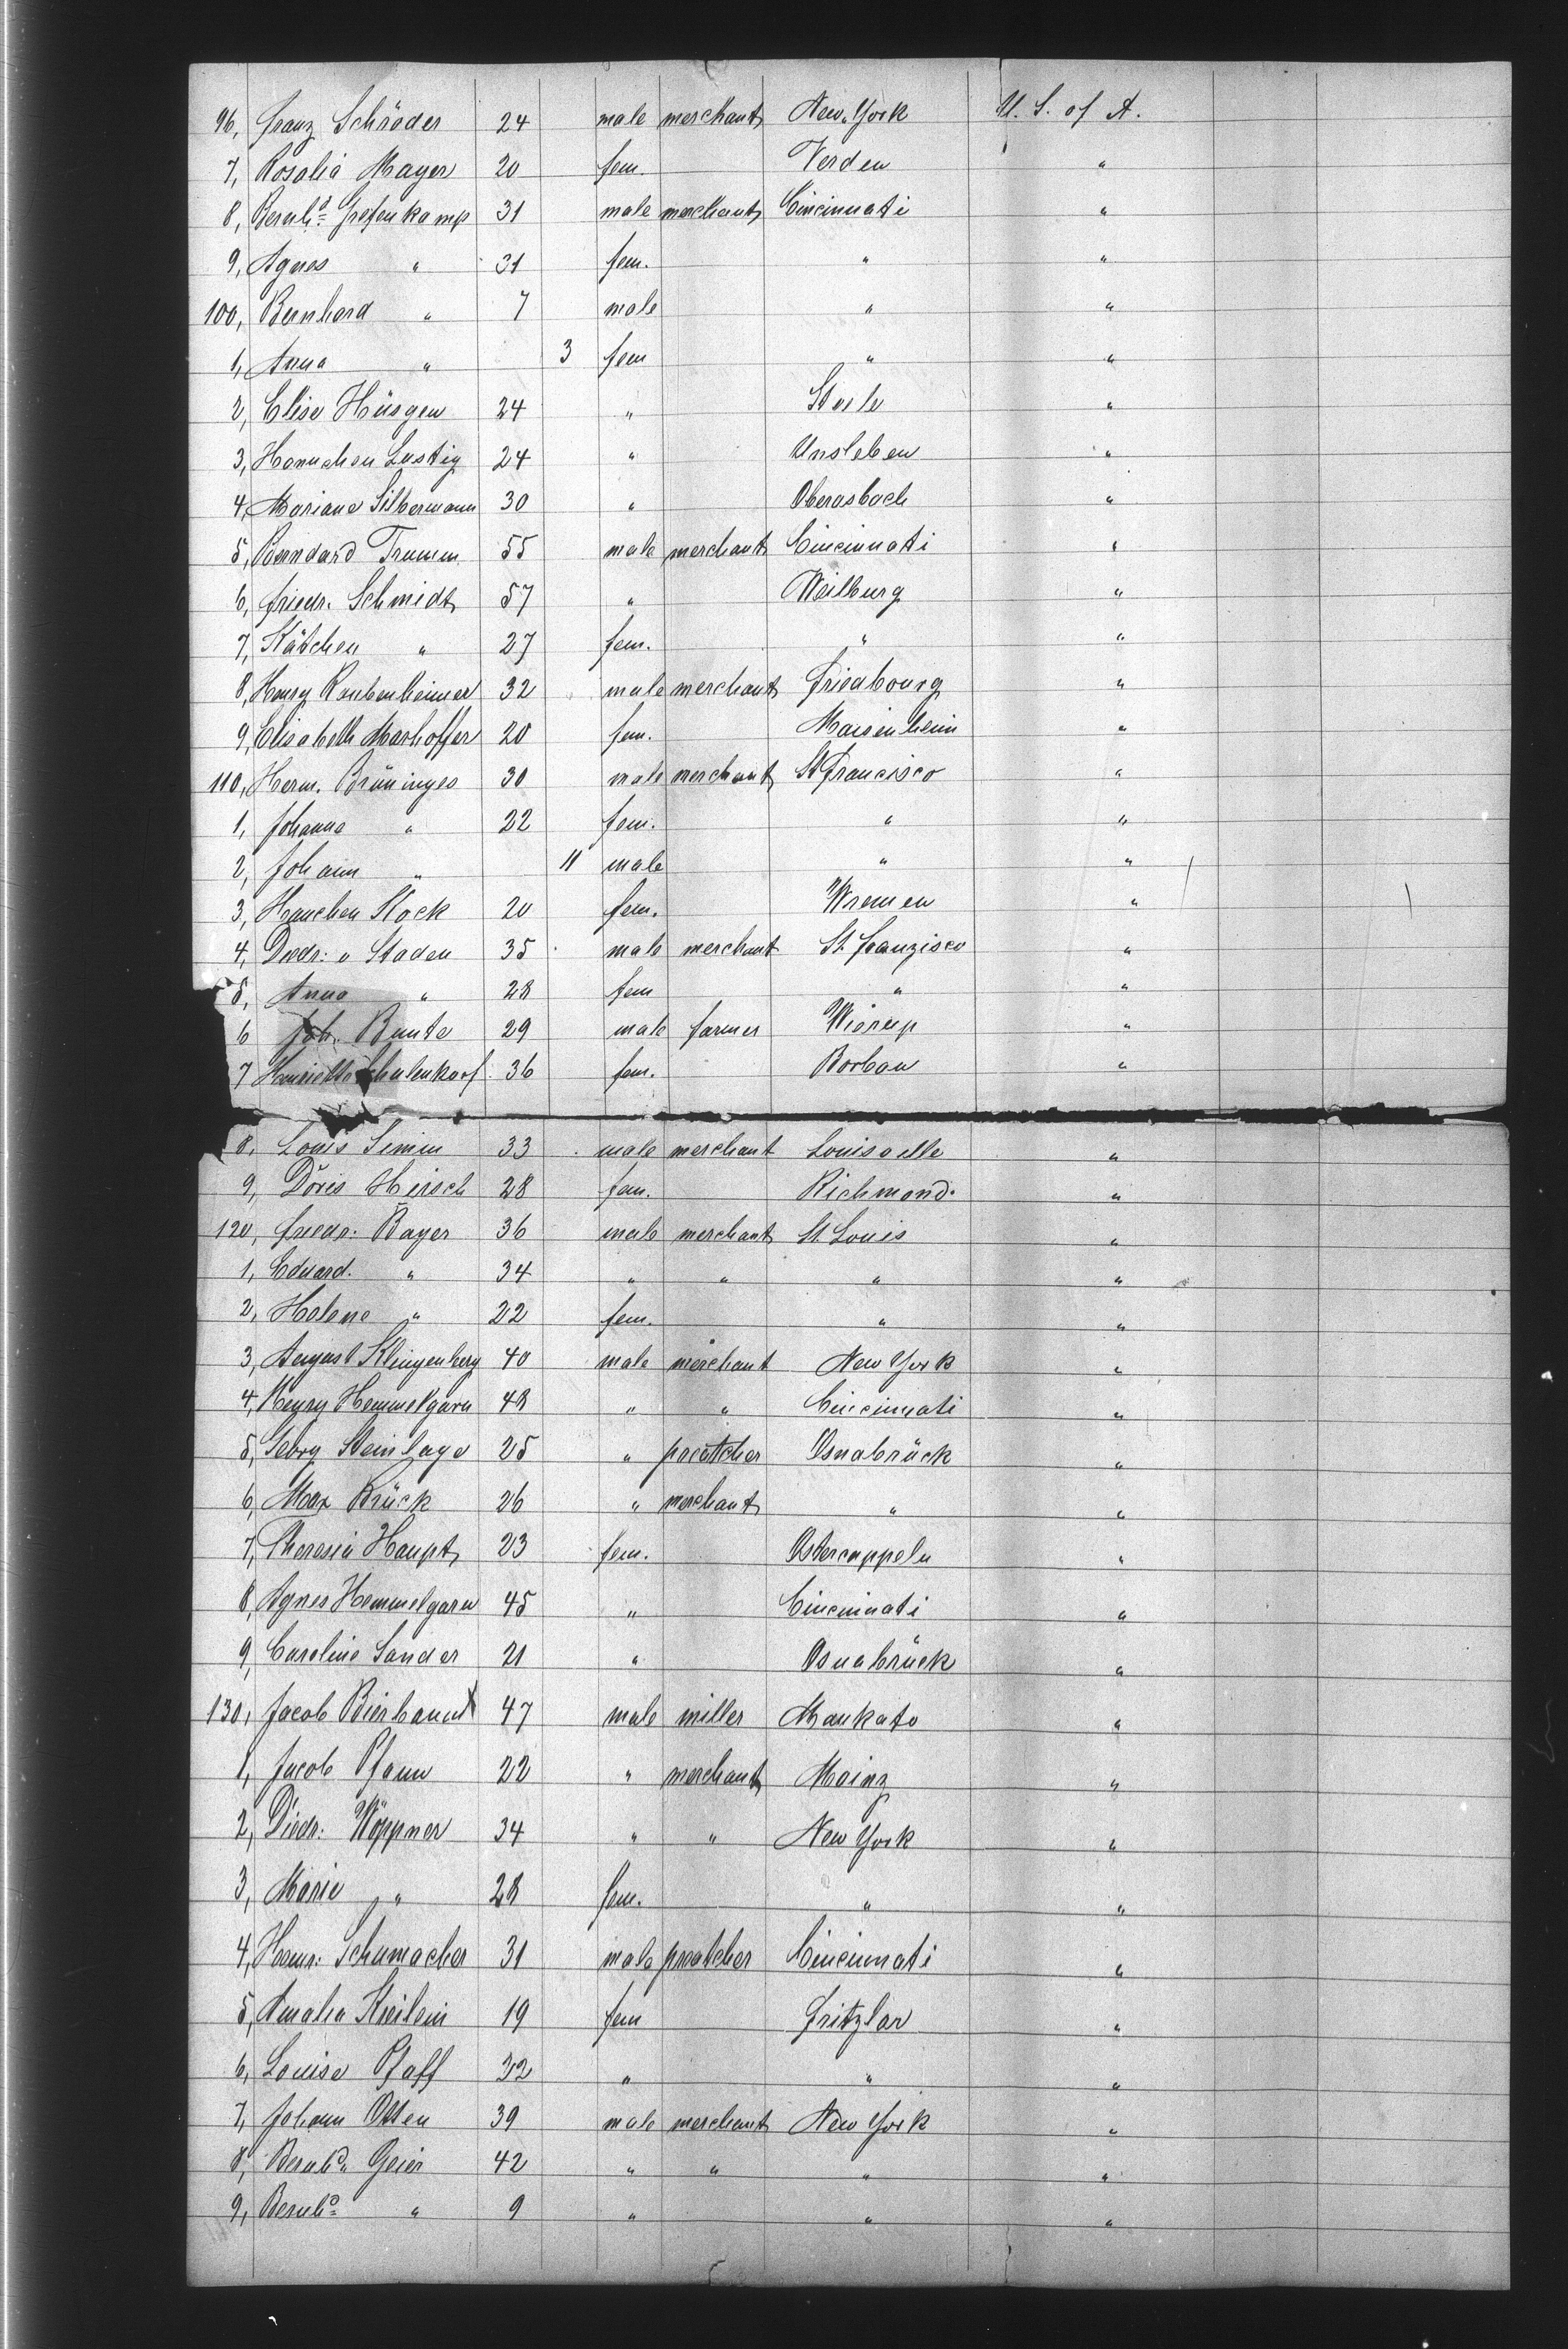 96, Franz Schröder 24 male merchant New-York U. S. of A.
7, Rosalia Mayer 20 fem. Verden "
8, Bernhd. Grefenkamp 31 male merchant Cincinnati "
9, Agnes " 31 fem. " "
100, Bernhard " 7 male " "
1, Anna " 3 fem " "
2, Elise Hüsgen 24 " Steele "
3, Hannchen Lustig 24 " Unsleben "
4, Mariane Silbermann 30 " Oberasbach "
5, Berndard Trumm 55 male merchant Cincinnati "
6, Friedr. Schmidt 57 " Weilburg "
7, Kätchen " 27 fem. " "
8, Henry Raubenheimer 32 male merchant Friedbourg "
9, Elisabeth Marhoffer 20 fem. Maisenheim "
110, Herm. Brüninges 30 male merchant St Francisco "
1, Johanne " 22 fem. " "
2, Johann " 11 male " "
3, Hanchen Stock 20 fem. Wremen "
4, Diedr: v Staden 35 male merchant St. Franzisco "
5, Anna " 28 fem " "
6 Joh. Bunte 29 male farmer Wierup "
7 Henriette Schulenkorf 36 fem. Borbau "
8, Louis Simm 33 male merchant Louisvelle "
9, Doris Hirsch 28 fem. Richmond. "
120, Friedr: Bayer 36 male merchant St. Louis "
1, Eduard. " 34 " " " "
2, Helene " 22 fem. " "
3, August Klingenberg 40 male merchant New York "
4, Henry Hemmelgarn 48 " " Cincinnati "
5, Georg Steinlage 25 " preatcher Osnabrück "
6, Max Brück 26 " merchant " "
7, Theresia Haupt 23 fem. Ostercappeln "
8, Agnes Hemmelgarn 45 " Cincinnati "
9, Caroline Sander 21 " Osnabrück "
130, Jacob Bierbaum 47 male miller Mankato "
1, Jacob Pfann 22 " merchant Mainz "
2, Diedr: Wöppner 34 " " New York "
3, Marie " 28 fem. " "
4, Henr: Schumacher 31 male preatcher Cincinnati "
5, Amalia Kreilein 19 fem Fritzlar "
6, Louise Pfaff 32 " " "
7, Johann Otten 39 male merchant New York "
8, Bernhd. Geier 42 " " " "
9, Bernhd. " 9 " " "